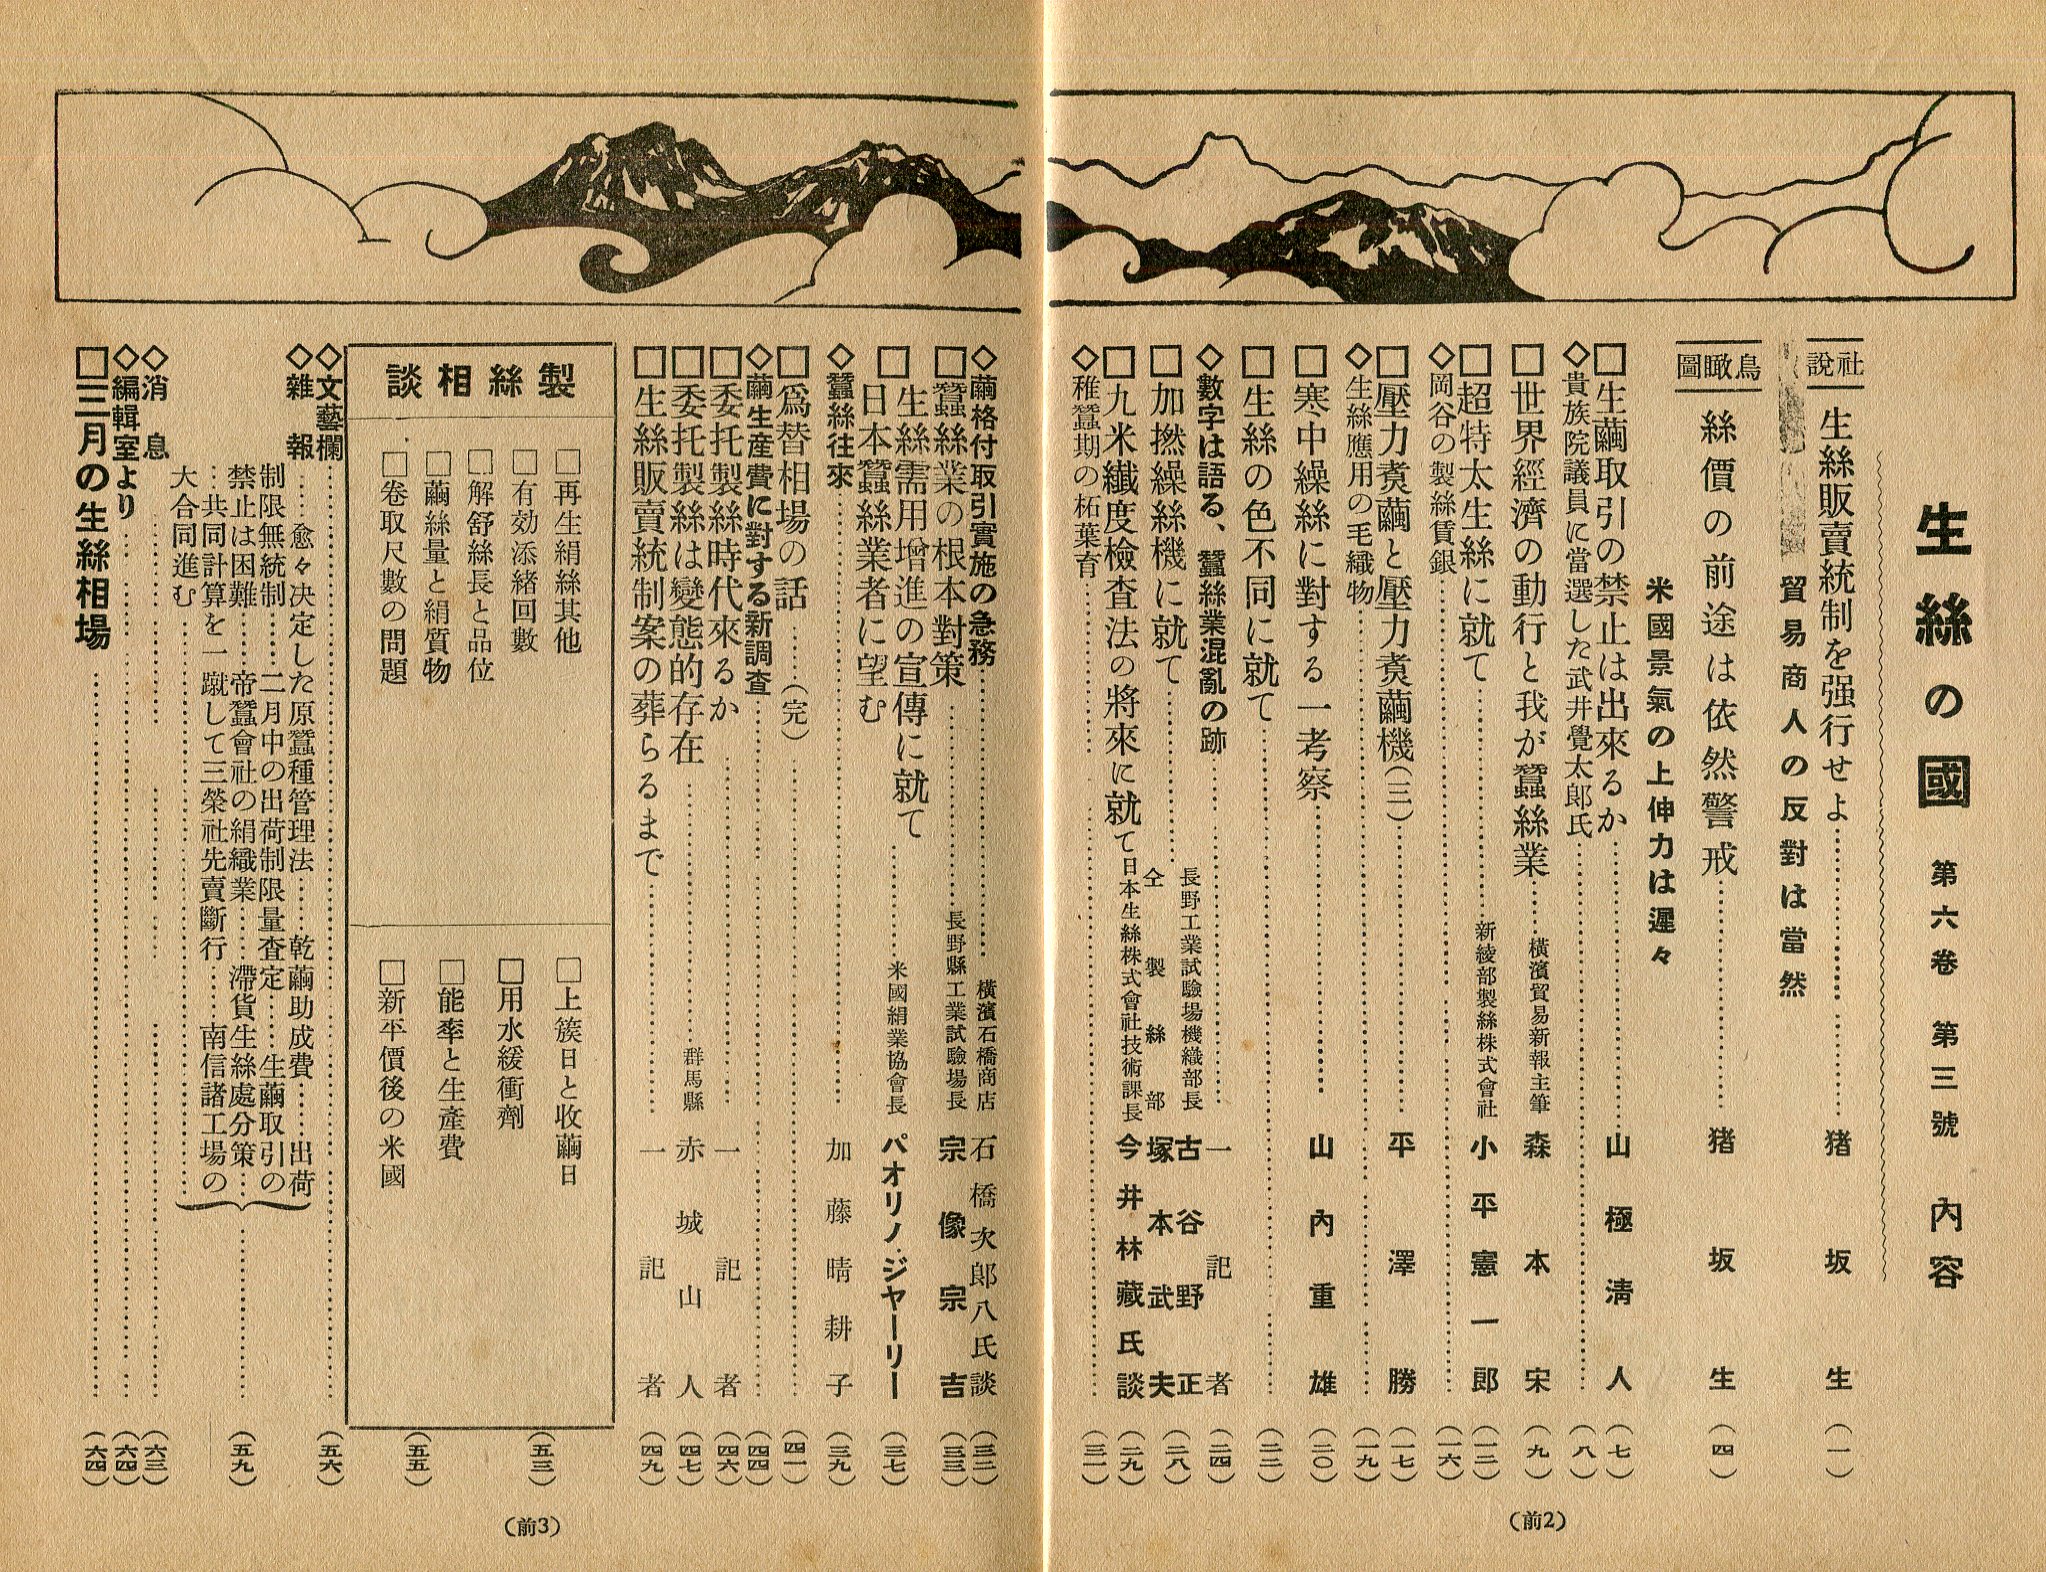 生絲の國 第六卷 第三號 內容
社說 生絲販賣統制を强行せよ…… 猪坂生 (一)
貿易商人の反對は當然
鳥瞰圖 絲價の前途は依然警戒…… 猪坂生 (四)
米國景氣の上伸力は遲々
□生繭取引の禁止は出來るか…… 山極淸人 (七)
◇貴族院議員に當選した武井覺太郞氏…… (八)
□世界經濟の動行と我が蠶絲業…… 橫濱貿易新報主筆 森本宋 (九)
□超特太生絲に就て…… 新綾部製絲株式會社 小平憲一郎 (一二)
◇岡谷の製絲賃銀…… (一六)
□壓力煑繭と壓力煑繭機(二)…… 平澤勝 (一七)
◇生絲應用の毛織物…… (一九)
□寒中繰絲に對する一考察…… 山內重雄 (二〇)
□生絲の色不同に就て…… (二二)
◇數字は語る、蠶絲業混亂の跡…… 一記者 (二四)
□加撚繰絲機に就て…… 長野工業試驗場機織部長 古谷野正 仝製絲部 塚本武夫 (二八)
□九米纖度檢査法の將來に就て 日本生絲株式會社技術課長 今井林藏氏談 (二九)
◇稚蠶期の柘葉育…… (三一)
(前2)
◇繭格付取引實施の急務…… 橫濱石橋商店 石橋次郞八氏談 (三二)
□蠶絲業の根本對策…… 長野縣工業試驗場長 宗像宗吉 (三三)
□生絲需用增進の宣傳に就て
日本蠶絲業者に望む…… 米國絹業協會長 パオリノ・ジヤーリー (三七)
◇蠶絲往來…… 加藤晴耕子 (三九)
□爲替相場の話……(完)…… (四一)
◇繭生產費に對する新調査…… (四四)
□委托製絲時代來るか…… 一記者 (四六)
□委托製絲は變態的存在…… 群馬縣 赤城山人 (四七)
□生絲販賣統制案の葬らるまで…… 一記者 (四九)
製絲相談
□再生絹絲其他
□有効添緖回數
□解舒絲長と品位
□繭絲量と絹質物
□卷取尺數の問題
□上簇日と收繭日
□用水緩衝劑
□能率と生產費
□新平價後の米國
(五三)
(五五)
◇文藝欄…… (五六)
◇雜報……愈々決定した原蠶種管理法……乾繭助成費……出荷
制限無統制……二月中の出荷制限量査定……生繭取引の
禁止は困難……帝蠶會社の絹織業……滯貨生絲處分策……
……共同計算を一蹴して三榮社先賣斷行……南信諸工場の
大合同進む…… (五九)
◇消息…… (六三)
◇編輯室より…… (六四)
□三月の生絲相場…… (六四)
(前3)